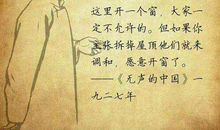 这里开个窗，大家一
定不允许的。但如果你
主张拆掉屋顶他们就来
调和，愿意开窗了。
——《无声的中国》一
九二七年